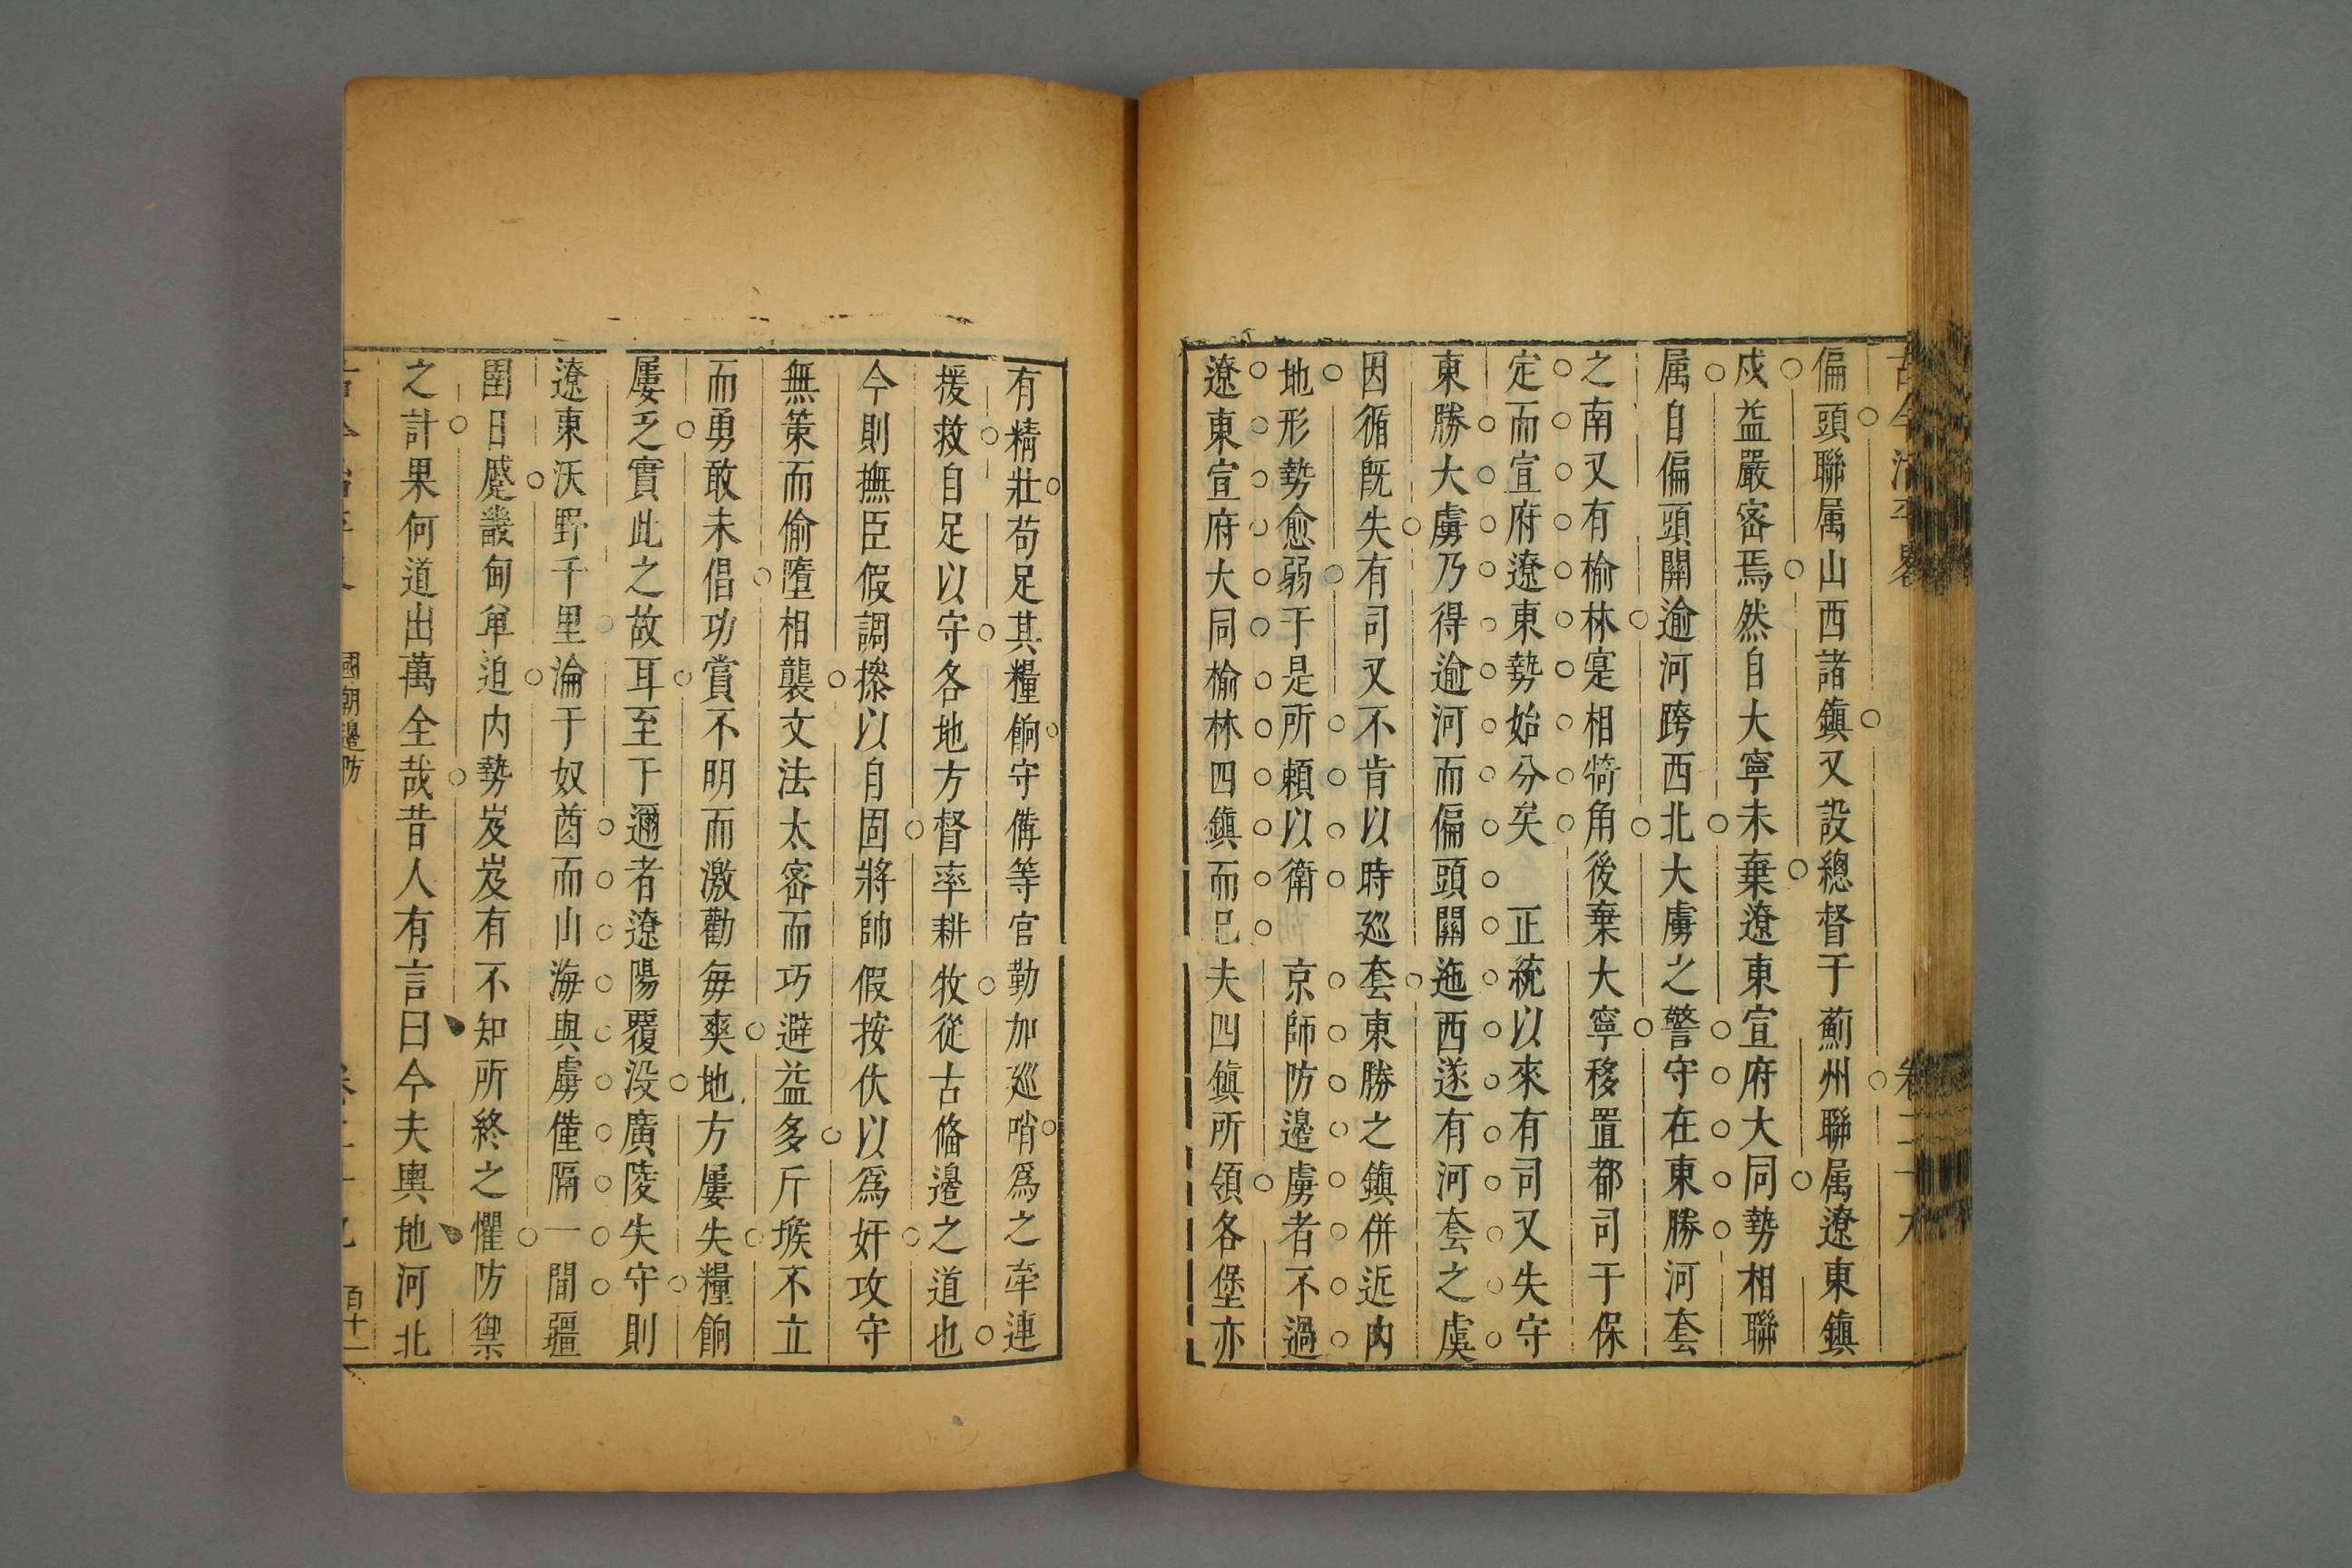 古今治平畧 卷二十六
偏頭聯属山西諸鎮又設總督于薊州聯属遼東鎮
戍益嚴密焉然自大寧未棄遼東宣府大同勢相聯
属自偏頭關逾河跨西北大虜之警守在東勝河套
之南又有榆林寔相犄角後棄大寧移置都司于保
定而宣府遼東勢始分矣 正統以來有司又失守
東勝大虜乃得逾河而偏頭關迤西遂有河套之虞
因循既失有司又不肯以時廵套東勝之鎮併近內
地形勢愈弱于是所賴以衛 京師防邉虜者不過
遼東宣府大同榆林四鎮而已夫四鎮所領各堡亦
有精壯苟足其糧餉守備等官勤加廵哨為之牽連
援救自足以守各地方督率耕牧從古偹邉之道也
今則撫臣假調摻以自固將帥假按伏以爲奸攻守
無策而偷墮相襲文法太密而巧避益多斤堠不立
而勇敢未倡功賞不明而激勸每爽地方屢失糧餉
屢乏實此之故耳至于邇者遼陽覆没廣陵失守則
遼東沃野千里淪于奴酋而山海與虜僅隔一間疆
圉日蹙畿甸單迫内勢岌岌有不知所終之懼防禦
之計果何道出萬全哉昔人有言曰今夫輿地河北
國朝邉防 百十一